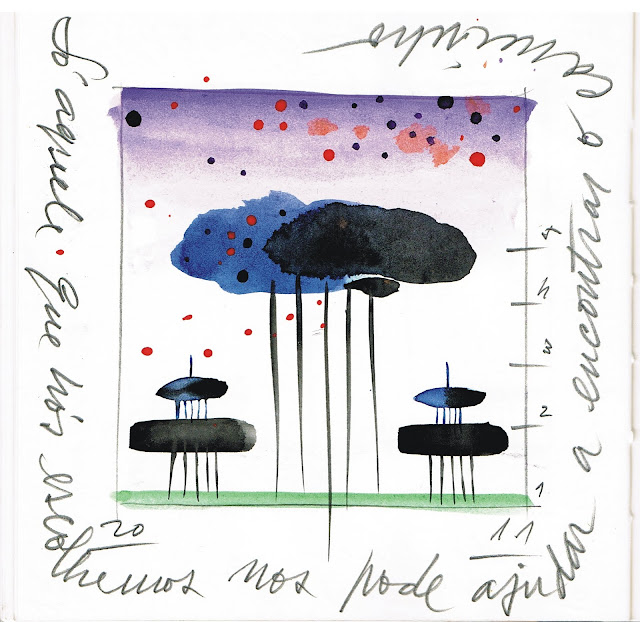 aquele. Que nós
escolhemos nos pode ajudar
a encontrar o
caminho
2
1
20
11